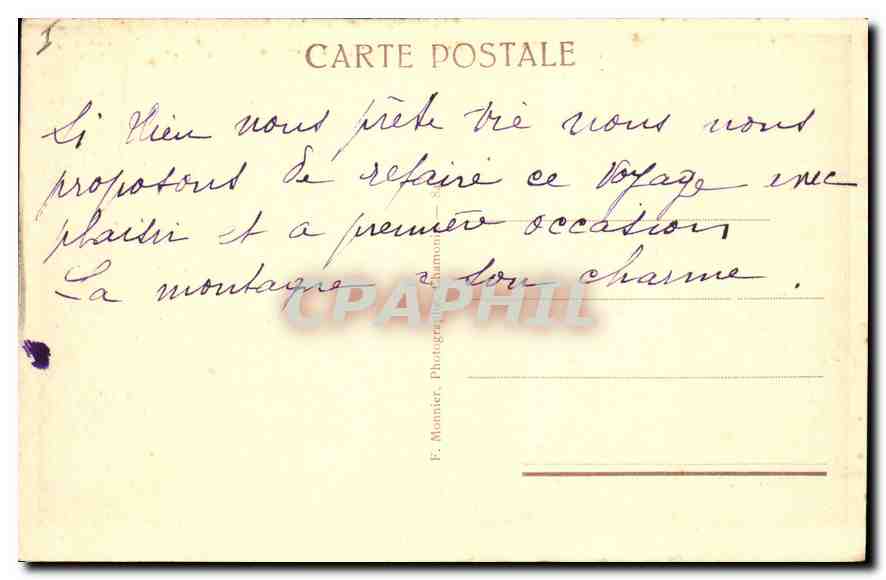 I
CARTE POSTALE
Si Dieu nous prête vie nous nous
proposons de refaire ce voyage avec
plaisir et a première occasion
La montagne a son charme .
CPAPHIL
F. Monnier, Photographe, Chamonix